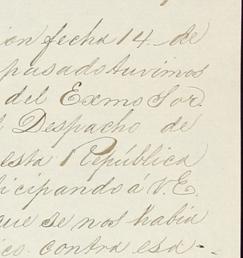 en fecha 14 de
pasado tuvimos
del Exmo Sor.
Despacho de
esta República
ticipando á V.E.
que se nos habia
ico contra esa